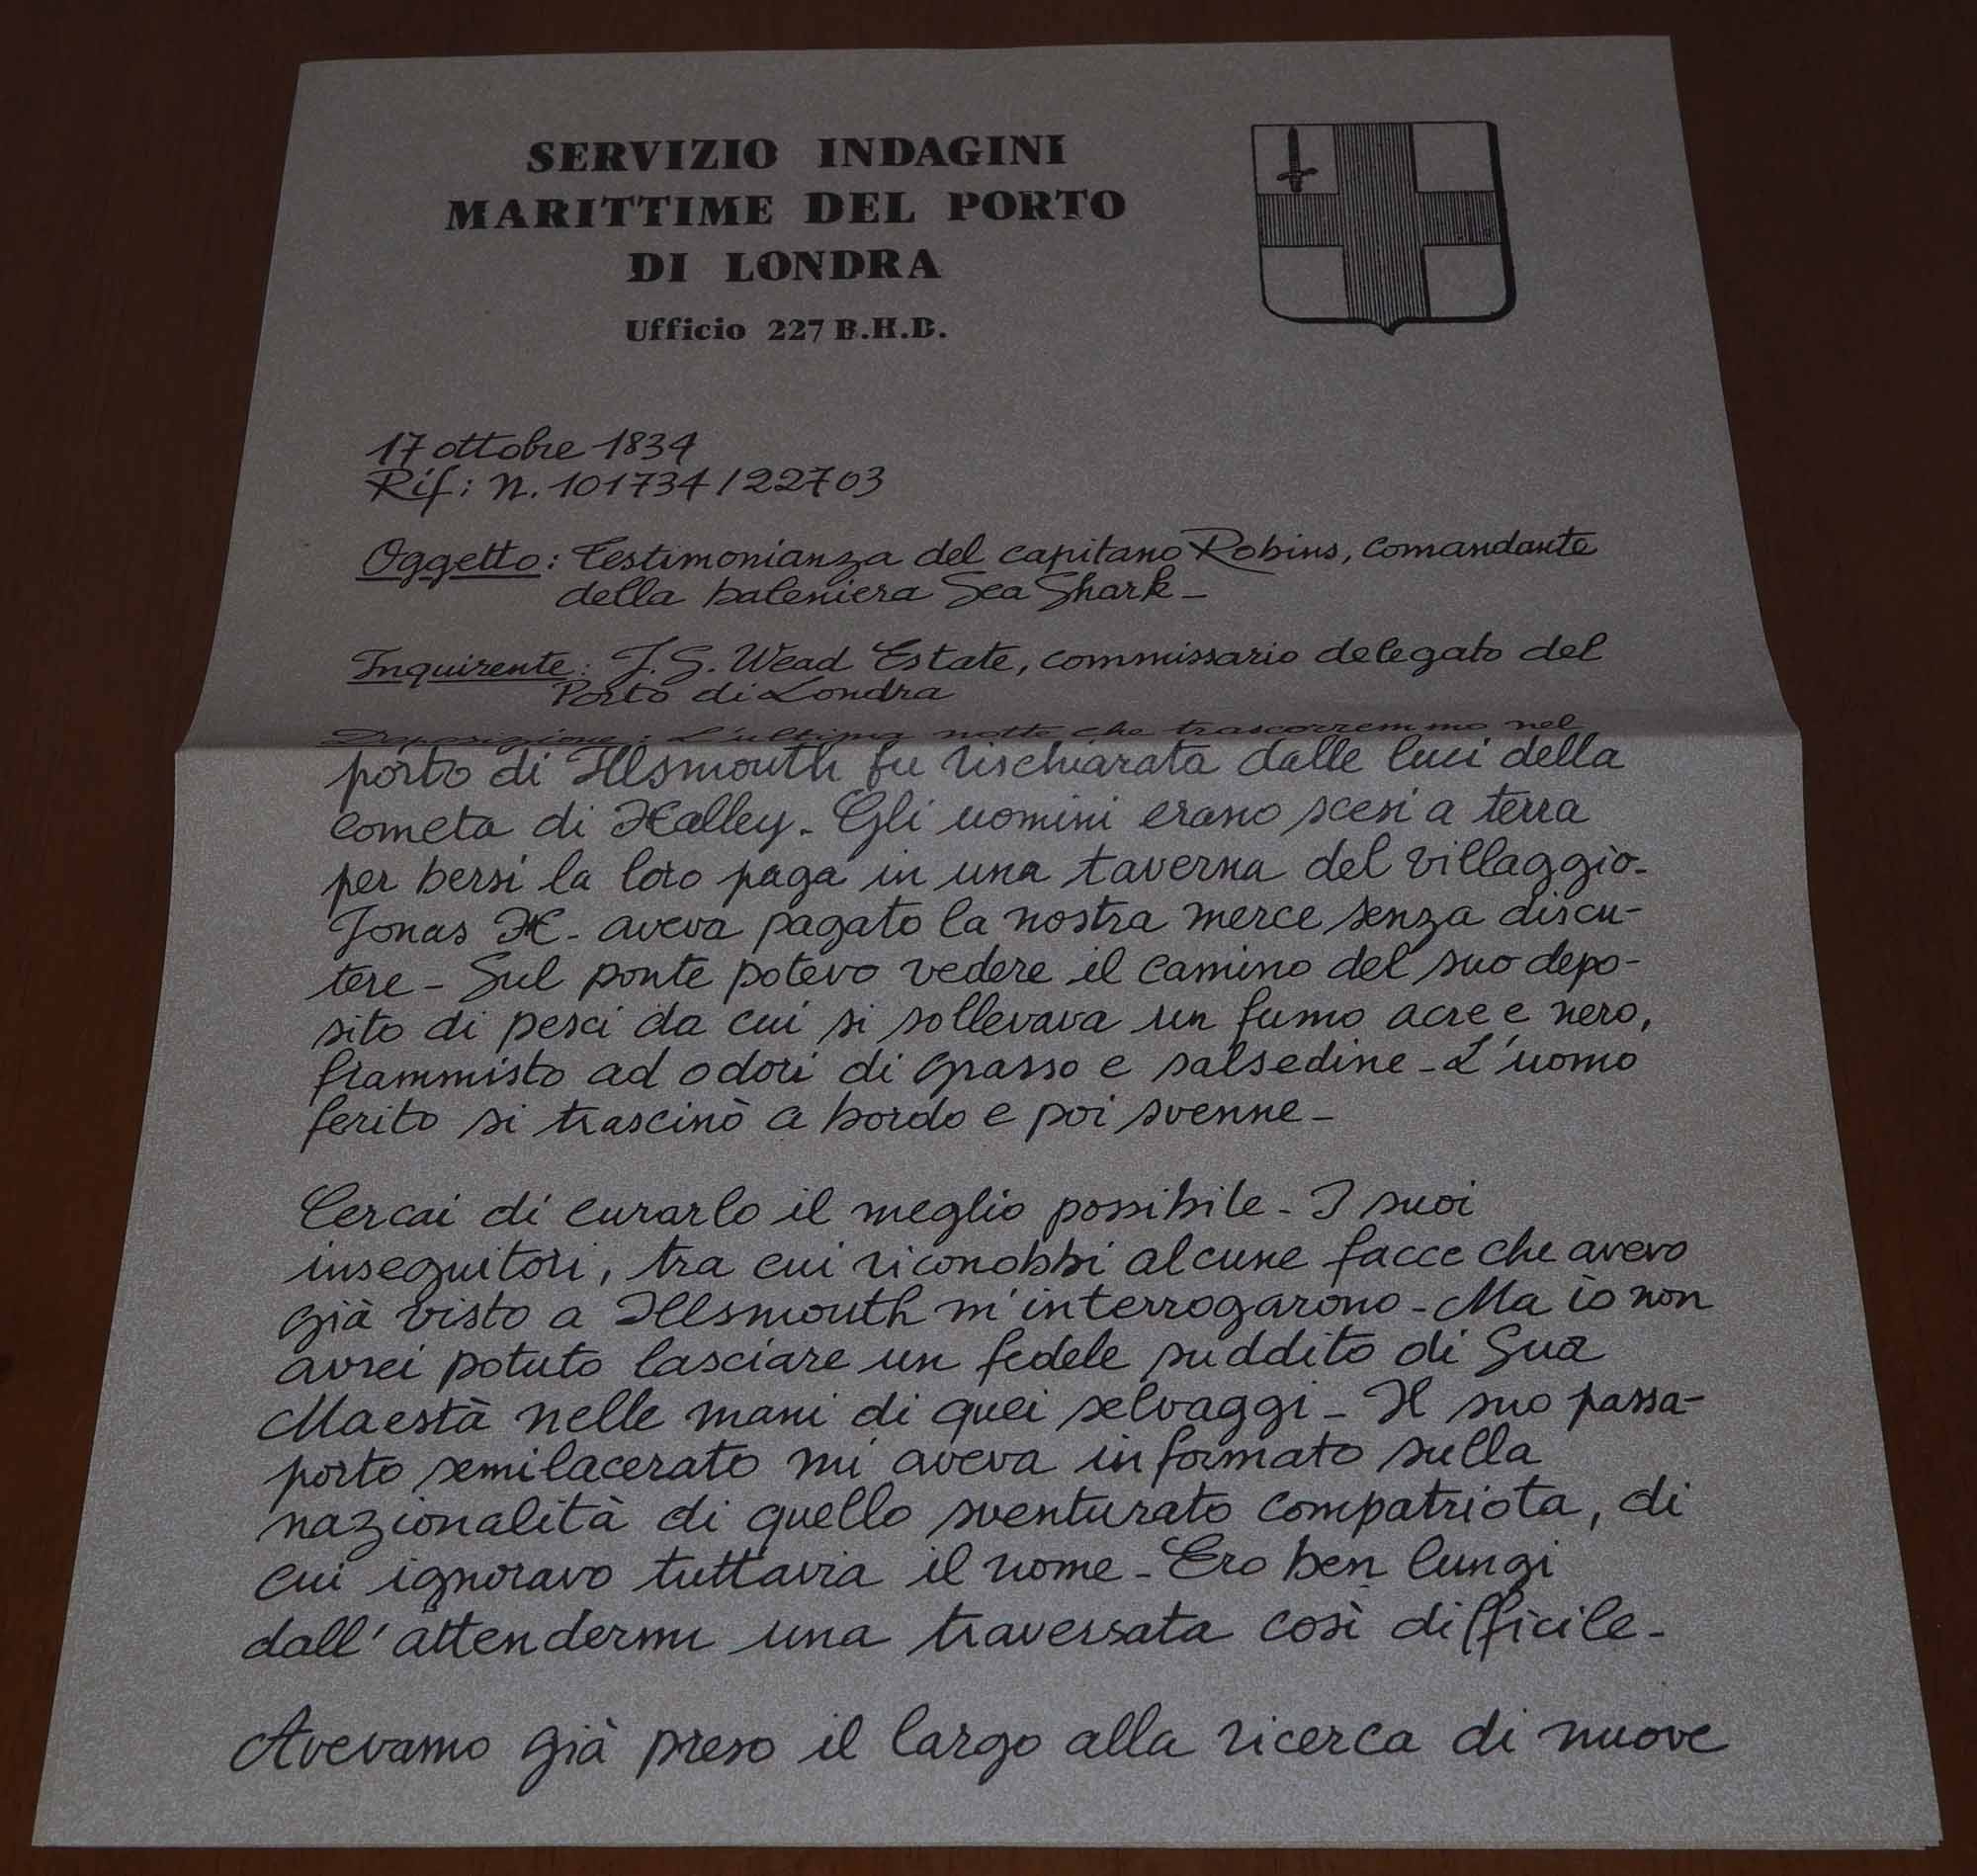 SERVIZIO INDAGINI
MARITTIME DEL PORTO
DI LONDRA
Ufficio 227 B.H.B.
17 ottobre 1834
Rif: N. 101734/22703
Oggetto: Testimonianza del capitano Robins, comandante
della baleniera Sea Shark -
Inquirente: J. G. Wead Estate, commissario delegato del
Porto di Londra
Deposizione: L'ultima notte che trascorremmo nel
porto di Illsmouth fu rischiarata dalle luci della
cometa di Halley - Gli uomini erano scesi a terra
per bersi la loro paga in una taverna del villaggio -
Jonas H. aveva pagato la nostra merce senza discu-
tere - Sul ponte potevo vedere il camino del suo depo-
sito di pesci da cui si sollevava un fumo acre e nero,
frammisto ad odori di grasso e salsedine - L'uomo
ferito si trascinò a bordo e poi svenne -
Cercai di curarlo il meglio possibile - I suoi
inseguitori, tra cui riconobbi alcune facce che avevo
già visto a Illsmouth m'interrogarono - Ma io non
avrei potuto lasciare un fedele suddito di Sua
Maestà nelle mani di quei selvaggi - Il suo passa-
porto semilacerato mi aveva informato sulla
nazionalità di quello sventurato compatriota, di
cui ignoravo tuttavia il nome - Ero ben lungi
dall'attendermi una traversata così difficile -
Avevamo già preso il largo alla ricerca di nuove